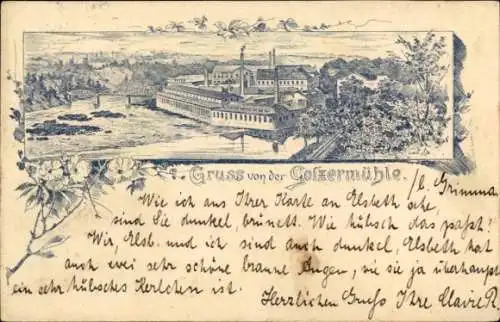 Gruss von der Golzermühle.
b. Grimma
Wie ich aus Ihrer Karte an Elsbeth sehe,
sind Sie dunkel, brünett. Wie hübsch das paßt!
Wir, Elsb. und ich sind auch dunkel, Elsbeth hat
auch zwei sehr schöne braune Augen, wie sie ja überhaupt
ein sehr hübsches Kerlchen ist.
Herzlichen Gruß Ihre R.